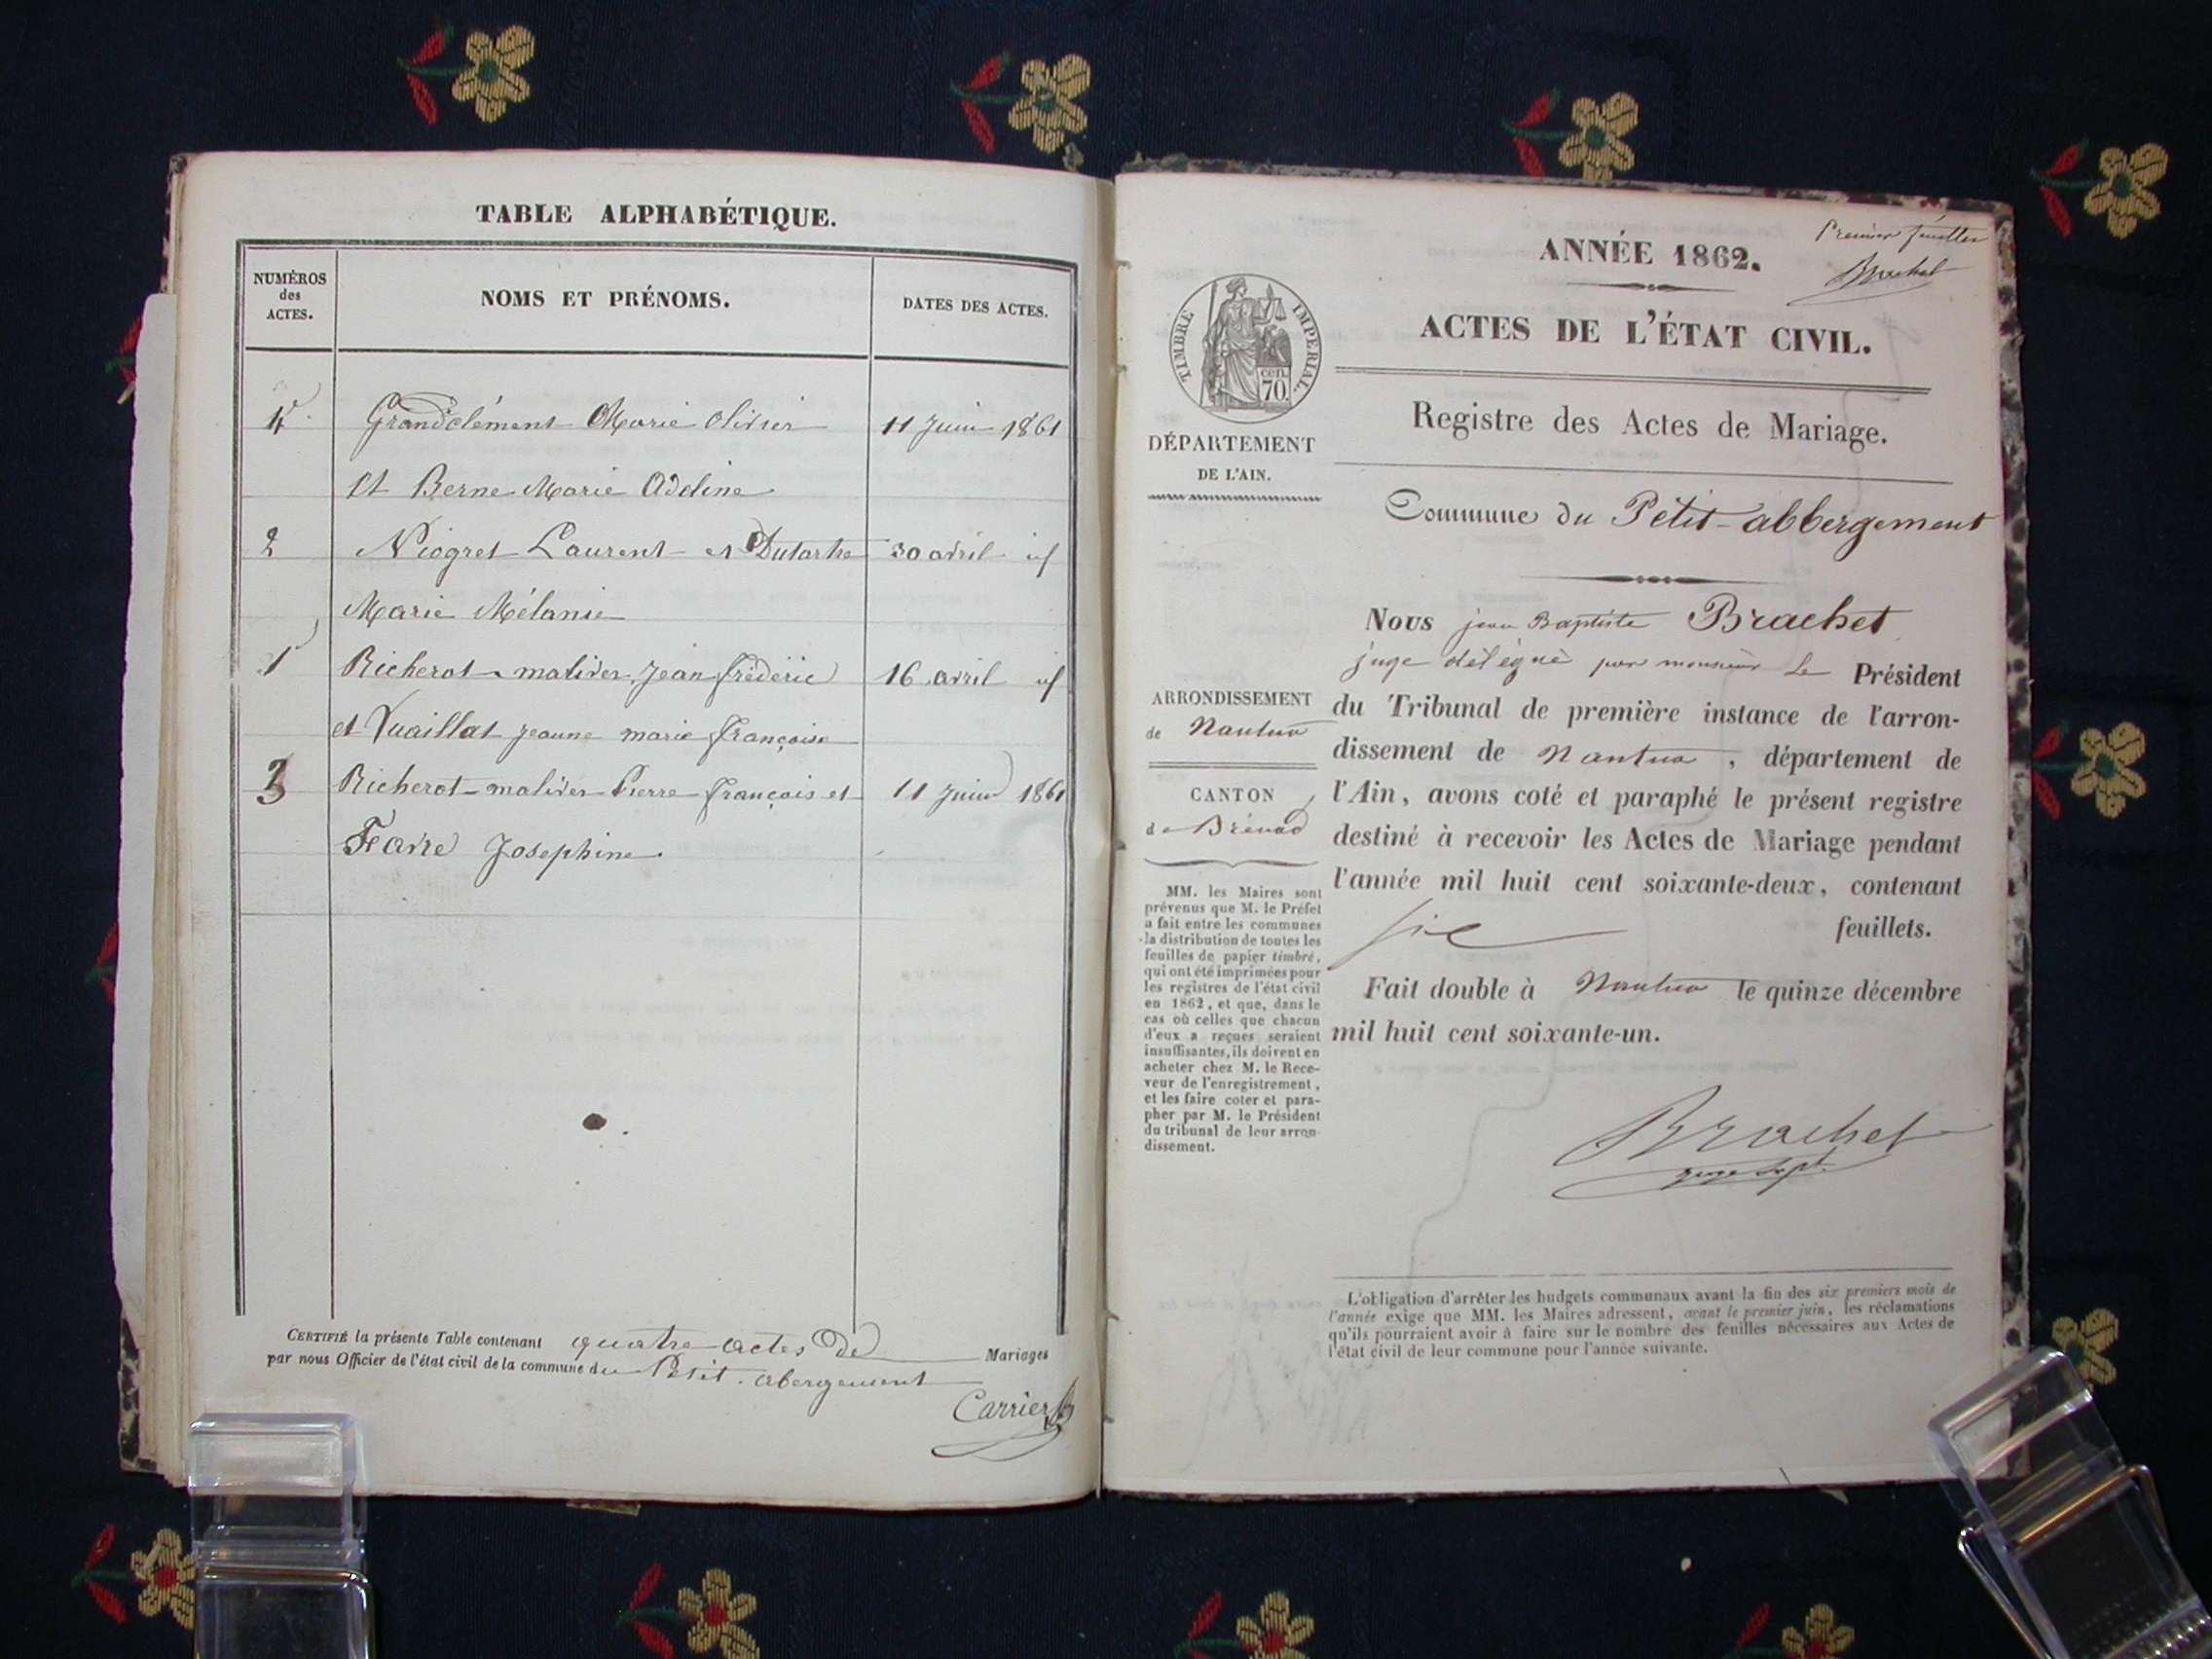 TABLE ALPHABÉTIQUE.
NUMÉROS des ACTES.
NOMS ET PRÉNOMS.
DATES DES ACTES.
4 Grandclément Marie Olivier 11 Juin 1861
et Berne Marie Adeline
2 Niogret Laurent et Dutartre 30 avril id
Marie Mélanie
1 Richerot-matires Jean frédéric 16 avril id
et Vuaillat jeanne marie françoise
3 Richerot-matires Pierre françois et 11 juin 1861
Favre Josephine.
CERTIFIÉ la présente Table contenant quatre actes de Mariages
par nous Officier de l'état civil de la commune du Petit-abergement
Carrier
Premier feuillet
Brachet
ANNÉE 1862.
ACTES DE L'ÉTAT CIVIL.
TIMBRE IMPERIAL.
cen. 70.
Registre des Actes de Mariage.
DÉPARTEMENT
DE L'AIN.
Commune du Petit-abbergement
ARRONDISSEMENT
de Nantua
CANTON
de Brénod
MM. les Maires sont
prévenus que M. le Préfet
a fait entre les communes
la distribution de toutes les
feuilles de papier timbré,
qui ont été imprimées pour
les registres de l'état civil
en 1862, et que, dans le
cas où celles que chacun
d'eux a reçues seraient
insuffisantes, ils doivent en
acheter chez M. le Rece-
veur de l'enregistrement,
et les faire coter et para-
pher par M. le Président
du tribunal de leur arron-
dissement.
Nous jean Baptiste Brachet
juge délégué par monsieur Le Président
du Tribunal de première instance de l'arron-
dissement de Nantua, département de
l'Ain, avons coté et paraphé le présent registre
destiné à recevoir les Actes de Mariage pendant
l'année mil huit cent soixante-deux, contenant
six feuillets.
Fait double à Nantua le quinze décembre
mil huit cent soixante-un.
Brachet
L'obligation d'arrêter les budgets communaux avant la fin des six premiers mois de
l'année exige que MM. les Maires adressent, avant le premier juin, les réclamations
qu'ils pourraient avoir à faire sur le nombre des feuilles nécessaires aux Actes de
l'état civil de leur commune pour l'année suivante.